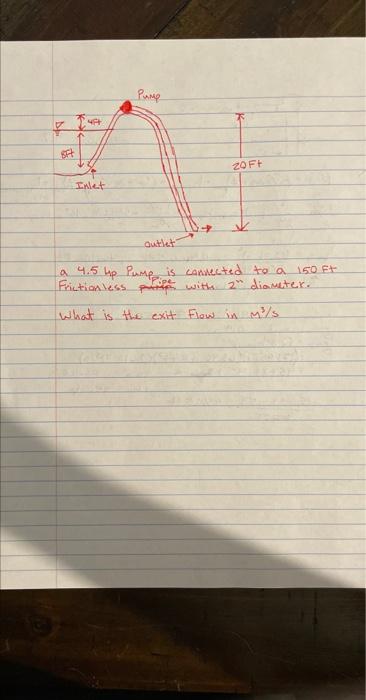 Pump
4ft
8ft
20Ft
Inlet
outlet
a 4.5 hp Pump is connected to a 150 Ft
Frictionless Pipe with 2" diameter.
What is the exit Flow in M³/s